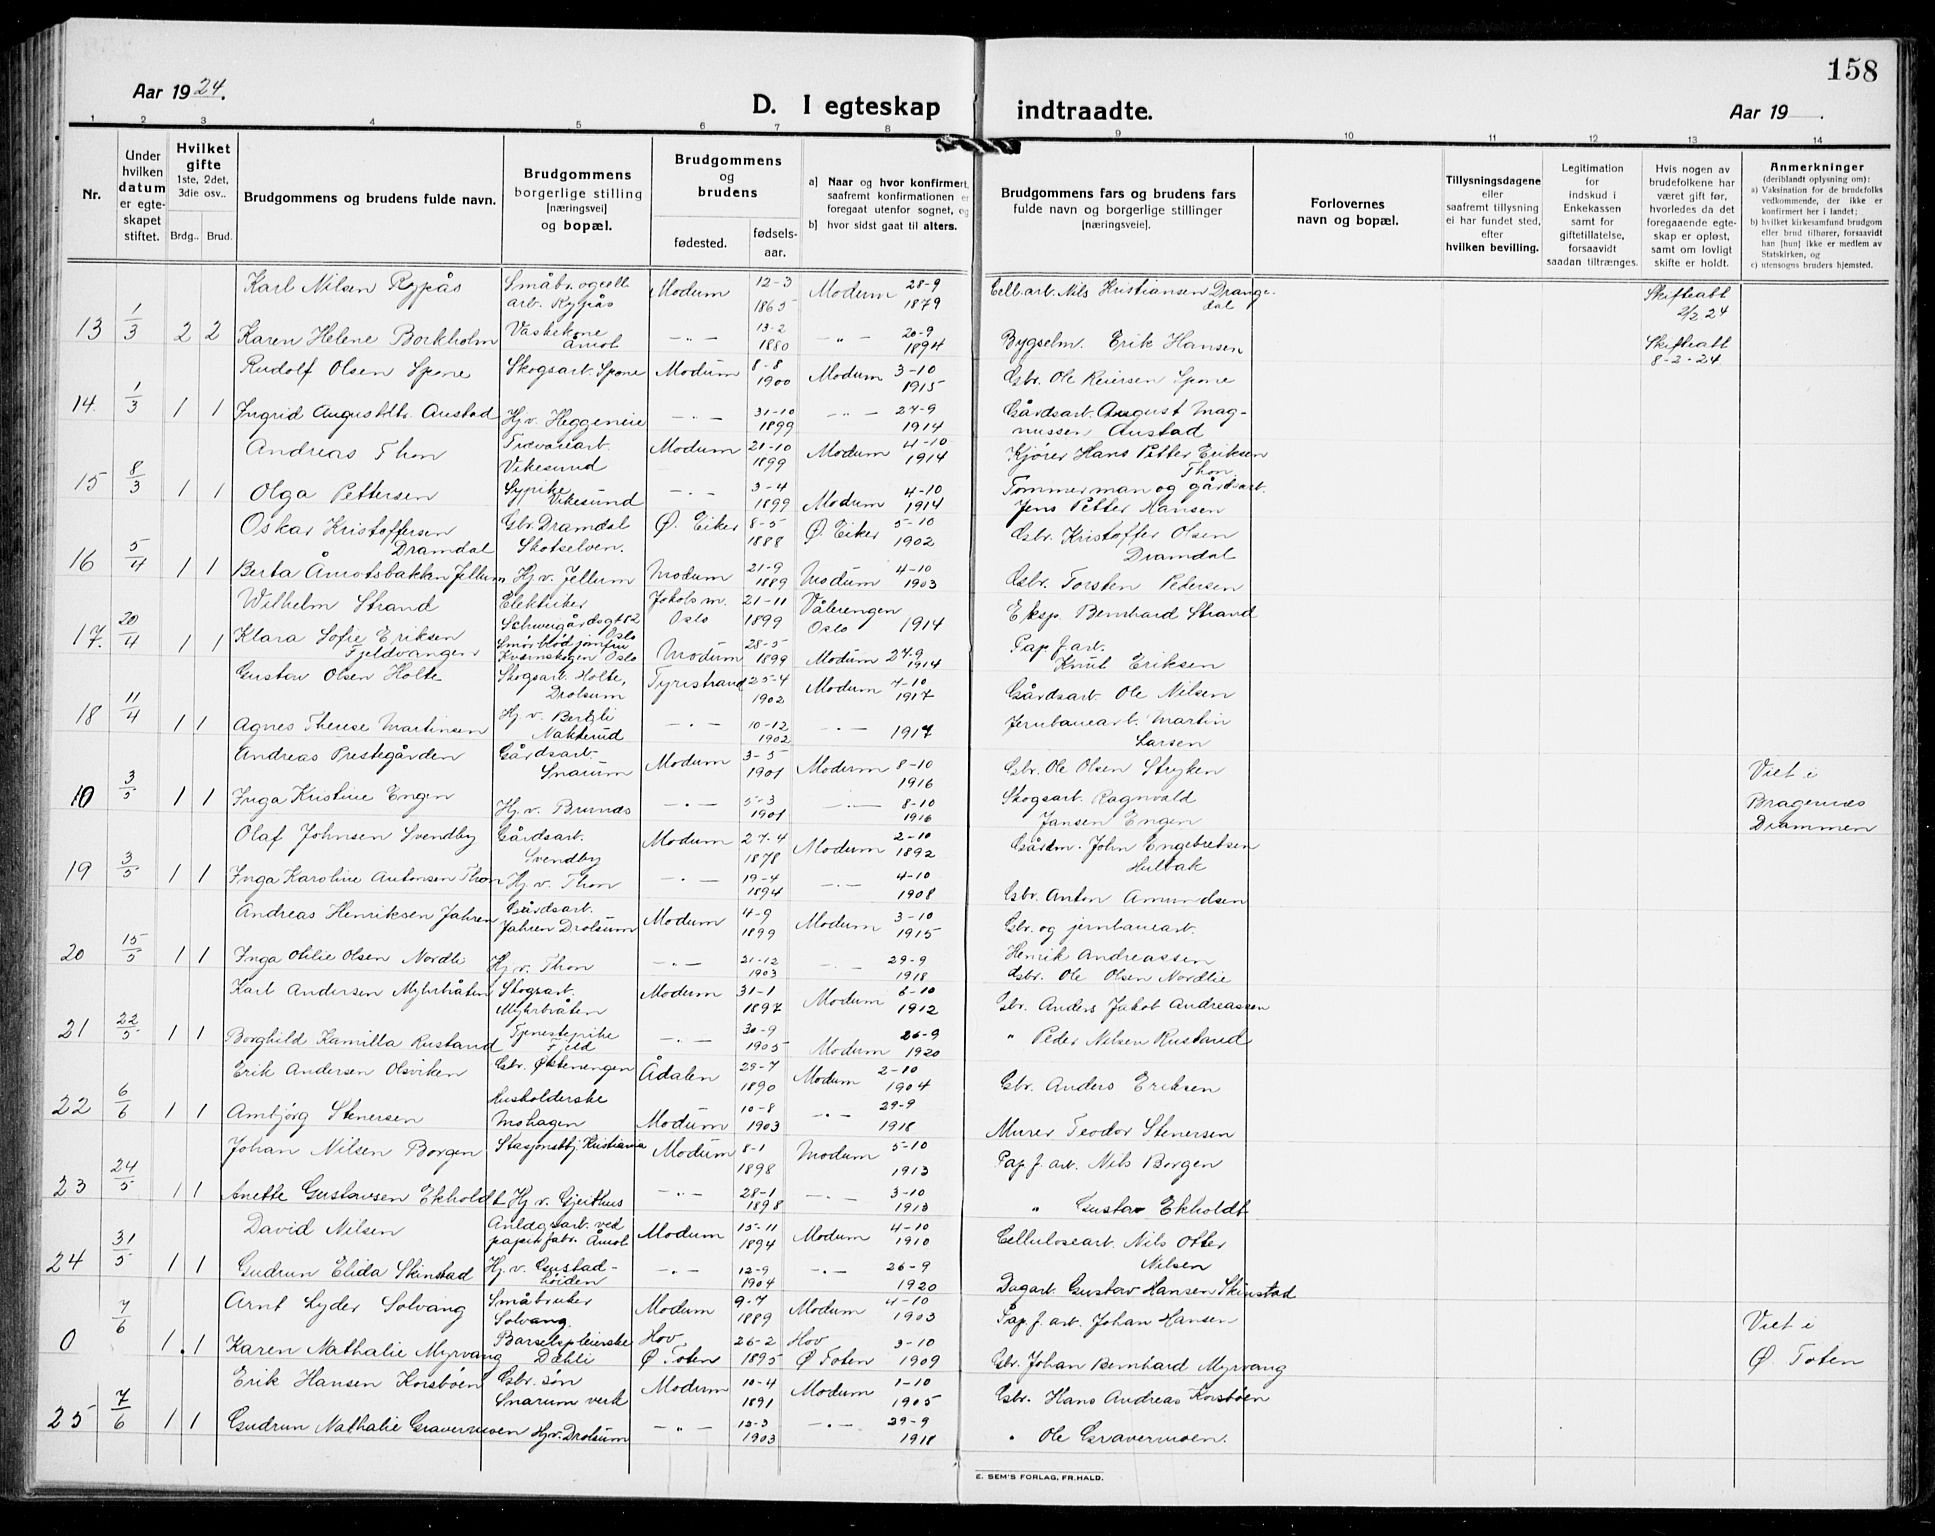 158
Aar 1924.
D. I egteskap indtraadte.
Aar 19
1 2 3 4 5 6 7 8 9 10 11 12 13 14
Nr.
Under hvilken datum er egteskapet stiftet.
Hvilket gifte 1ste, 2det, 3die osv..
Brdg.. Brud.
Brudgommens og brudens fulde navn.
Brudgommens borgerlige stilling [næringsvei] og bopæl.
Brudgommens og brudens
fødested.
fødsels-aar.
a) Naar og hvor konfirmert, saafremt konfirmationen er foregaat utenfor sognet, og
b) hvor sidst gaat til alters.
Brudgommens fars og brudens fars fulde navn og borgerlige stillinger [næringsveie].
Forlovernes navn og bopæl.
Tillysningsdagene eller saafremt tillysning ei har fundet sted, efter hvilken bevilling.
Legitimation for indskud i Enkekassen samt for giftetillatelse, forsaavidt saadan tiltrænges.
Hvis nogen av brudefolkene har været gift før, hvorledes da det foregaaende egteskap er opløst, samt om lovligt skifte er holdt.
Anmerkninger (deriblandt oplysning om):
a) Vaksination for de brudefolks vedkommende, der ikke er konfirmert her i landet;
b) hvilket kirkesamfund brudgom eller brud tilhører, forsaavidt han [hun] ikke er medlem av Statskirken, og
c) utensogns bruders hjemsted.
Karl Nilsen Rypås Småbr. og cell. arb. Rypås Modum 12-3 1865 Modum 28-9 1879 Cell. arb. Nils Kristiansen Drangedal Skifteatt 2/2 24
13 1/3 2 2 Karen Helene Borkholm Vaskekone Åmot -"- 13-2 1880 -"- 20-9 1894 Bygselm. Erik Hansen Skifteatt 8-2-24
Rudolf Olsen Spone Skogsarb. Spone Modum 8-8 1900 Modum 3-10 1915 Gbr. Ole Reiersen Spone
14. 1/3 1 1 Ingrid Augustdtr. Austad Hj. v. Heggeneie -"- 31-10 1899 -"- 27-9 1914 Gårdsarb. August Magnussen Austad
Andreas Thon Trævarearb. Vikesund Modum 21-10 1899 Modum 4-10 1914 Kjører Hans Petter Eriksen Thon
15 8/3 1 1 Olga Pettersen Sypike Vikesund -"- 3-4 1899 Modum 4-10 1914 Tømmerman og gårdsarb. Jens Petter Hansen
Oskar Kristoffersen Dramdal Gbr. Dramdal Skotselven. Ø. Eiker 8-5 1888 Ø. Eiker 5-10 1902 Gbr. Kristoffer Olsen Dramdal
16 5/4 1 1 Berta Åmotsbakken Jellum Hj. v. Jellum Modum 21-9 1889 Modum 4-10 1903 Gbr. Torsten Pedersen
Wilhelm Strand Elektriker Schweigårdsgt 82 Oslo Jakobs m. Oslo 21-11 1899 Vålerengen Oslo 1914 Eksp. Bernhard Strand
17. 20/4 1 1 Klara Sofie Eriksen Fjeldvangen Smørbrødjomfru Kværnskogen Oslo Modum 28-5 1899 Modum 27-9 1914 Pap. f. arb. Knut Eriksen
Gustav Olsen Holte Skogsarb. Holte, Drolsum Tyristrand 25-4 1902 Modum 7-10 1917 Gårdsarb. Ole Nilsen
18 11/4 1 1 Agnes Therese Martinsen Hj. v. Bertli Nakkerud -"- 10-12 1902 -"- 1917 Jernbanearb. Martin Larsen
Andreas Prestegården Gårdsarb. Snarum Modum 3-5 1901 Modum 8-10 1916 Gbr. Ole Olsen Stryken Viet i
10 3/5 1 1 Inga Kristine Engen Hj. v. Brunæs -"- 5-3 1901 -"- 8-10 1916 Skogsarb. Ragnvald Jansen Engen Bragernæs Drammen
Olaf Johnsen Svendby Gårdsarb. Svendby Modum 27-4 1878 Modum 2-10 1892 Gårdm. John Engebretsen Hulbak
19 3/5 1 1 Inga Karoline Antonsen Thon Hj. v. Thon -"- 19-4 1894 -"- 4-10 1908 Gbr. Anton Amundsen
Andreas Henriksen Jahren Gårdsarb. Jahren Drolsum Modum 4-9 1899 Modum 3-10 1915 Gbr. og jernbanearb. Henrik Andreassen
20 15/5 1 1 Inga Otilie Olsen Nordli Hj. v. Thon -"- 21-12 1903 -"- 29-9 1918 Gbr. Ole Olsen Nordlie
Karl Andersen Myhrbråten Skogsarb. Myhrbråten Modum 31-1 1897 Modum 6-10 1912 Gbr. Anders Jakob Andreassen
21 22/5 1 1 Borghild Kamilla Rustand Tjenestepike Fjeld -"- 30-9 1905 Modum 26-9 1920 " Peder Nilsen Rustand
Erik Andersen Olsviken Gbr. Østenengen Ådalen 29-7 1890 Modum 2-10 1904 Gbr. Anders Eriksen
22 6/6 1 1 Ambjørg Stenersen Husholderske Mohagen Modum 10-8 1903 -"- 29-9 1918 Murer Teodor Stenersen
Johan Nilsen Borgen Stasjonsbtj. Kristiania Modum 8-1 1898 Modum 5-10 1913 Pap. f. arb. Nils Borgen
23 24/5 1 1 Anette Gustavsen Ekholdt Hj. v. Gjeithus -"- 28-1 1898 -"- 3-10 1913 " Gustav Ekholdt
David Nilsen Anlægsarb. ved papirfabr. Åmot Modum 15-11 1894 Modum 4-10 1910 Celluloseart. Nils Otter Nilsen
24 31/5 1 1 Gudrun Elida Skinstad Hj. v. Gustadhøiden -"- 12-9 1904 -"- 26-9 1920 Dagarb. Gustav Hansen Skinstad
Arnt Lyder Solvang Småbruker Solvang Modum 9-7 1889 Modum 4-10 1903 Pap. f. arb. Johan Hansen Viet i
0 7/6 1. 1 Karen Nathalie Myrvang Barselspleierske Dæhli Hov Ø. Toten 26-2 1895 Hov Ø. Toten 3-10 1909 Gbr. Johan Bernhard Myrvang Ø. Toten
Erik Hansen Korsbøen Gbr. søn Snarum verk Modum 10-4 1891 Modum 1-10 1905 Gbr. Hans Andreas Korsbøen
25 7/6 1 1 Gudrun Nathalie Gravermoen Hj. v. Drolsum -"- 12-3 1903 -"- 29-9 1918 " Ole Gravermoen.
E. SEM'S FORLAG, FR.HALD.